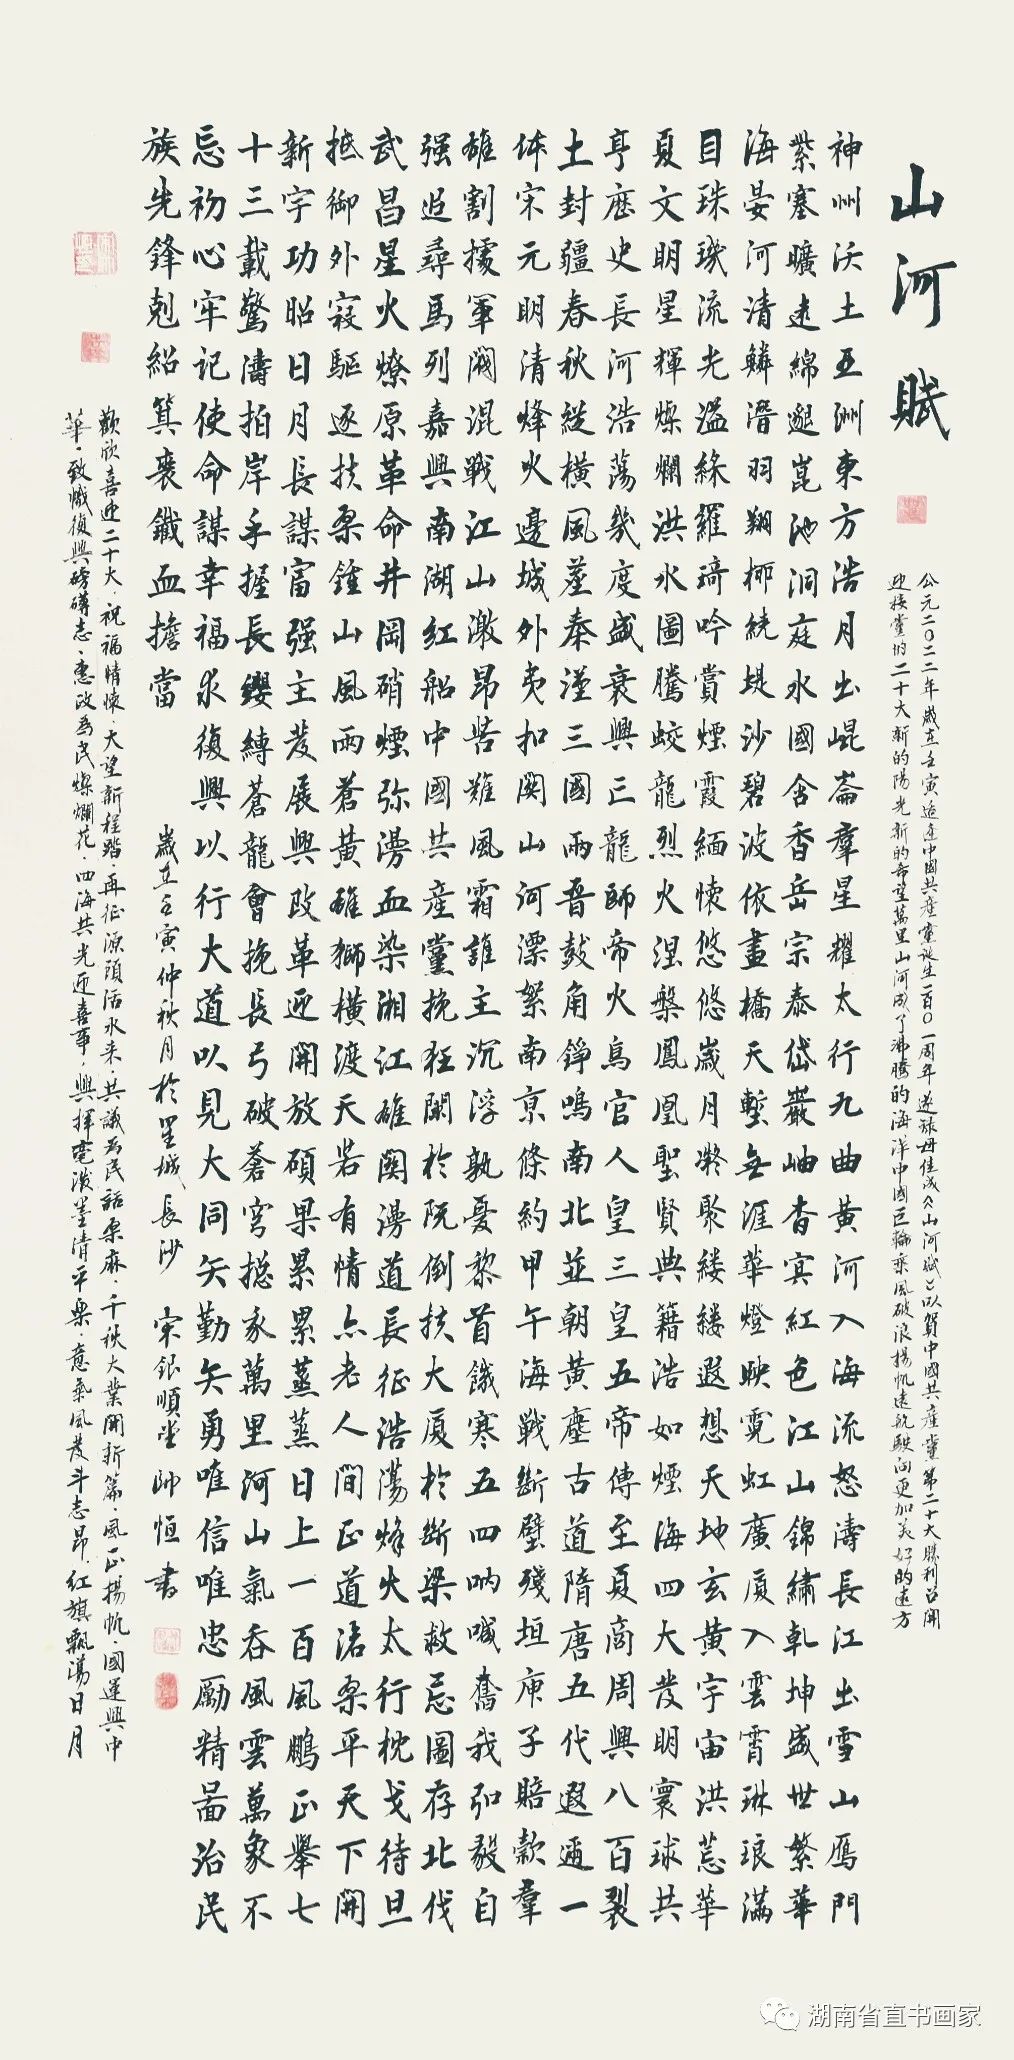 山河賦
公元二〇二二年歲在壬寅適逢中國共產黨誕生一百〇一周年遂綴毋佳成《山河賦》以賀中國共產黨第二十大勝利召開
迎接黨的二十大新的陽光新的希望萬里山河成了沸騰的海洋中國巨輪乘風破浪揚帆遠航駛向更加美好的遠方
神州沃土亞洲東方浩月出崐崙羣星耀太行九曲黃河入海流怒濤長江出雪山雁門
紫塞曠遠綿邈崑池洞庭水國含香岳宗泰岱巖岫杳冥紅色江山錦繡乹坤盛世繁華
海晏河清鱗潛羽翔柳繞堤沙碧波依畫橋天塹無涯華燈映霓虹廣廈入雲霄琳琅滿
目珠璣流光溢綠羅琦吟賞煙霞緬懷悠悠歲月凝聚縷縷遐想天地玄黃宇宙洪荒華
夏文明星輝燦爛洪水圖騰蛟龍烈火涅槃鳳凰聖賢典籍浩如煙海四大發明寰球共
亨歷史長河浩蕩幾度盛衰興亡龍師帝火鳥官人皇三皇五帝傳至夏商周興八百裂
土封疆春秋縱橫風塵秦漢三國兩晉鼓角錚鳴南北並朝黃塵古道隋唐五代遐邇一
体宋元明清烽火邊城外夷扣関山河漂絮南京條約甲午海戰斷壁殘垣庚子賠款羣
雄割據軍閥混戰江山激昂苦難風霜誰主沉浮孰憂黎首餓寒五四吶喊奮我弘毅自
强追尋馬列嘉興南湖紅船中國共產黨挽狂闌於既倒扶大廈於斷梁救亡圖存北伐
武昌星火燎原革命井岡硝煙弥漫血染湘江雄関漫道長征浩蕩烽火太行枕戈待旦
抵御外寇驅逐扶桑鍾山風雨蒼黃雄獅橫渡天若有情亦老人間正道滄桑平天下開
新宇功昭日月長謀富强主發展興改革迎開放碩果累累蒸蒸日上一百風鵬正舉七
十三載驚濤拍岸手握長纓縛蒼龍會挽長弓破蒼穹搃豪萬里河山氣吞風雲萬象不
忘初心牢记使命謀幸福求復興以行大道以見大同矢勤矢勇唯信唯忠勵精啚治民
族先鋒剋紹箕裘鐵血擔當
歲在壬寅仲秋月於星城長沙 宋銀順坐 帥恒書
歡欣喜迎二十大、祝福情懷、大望新程踏、再征源頭活水来、共議為民話桑麻、千秩大業開新篇、風正揚帆、國運興中
華、致熾復興磅礴志、惠政為民燦爛花、四海共光迎喜事、興揮毫潑墨清平樂、意氣風發斗志昂、紅旗飄蕩日月
湖南省直书画家